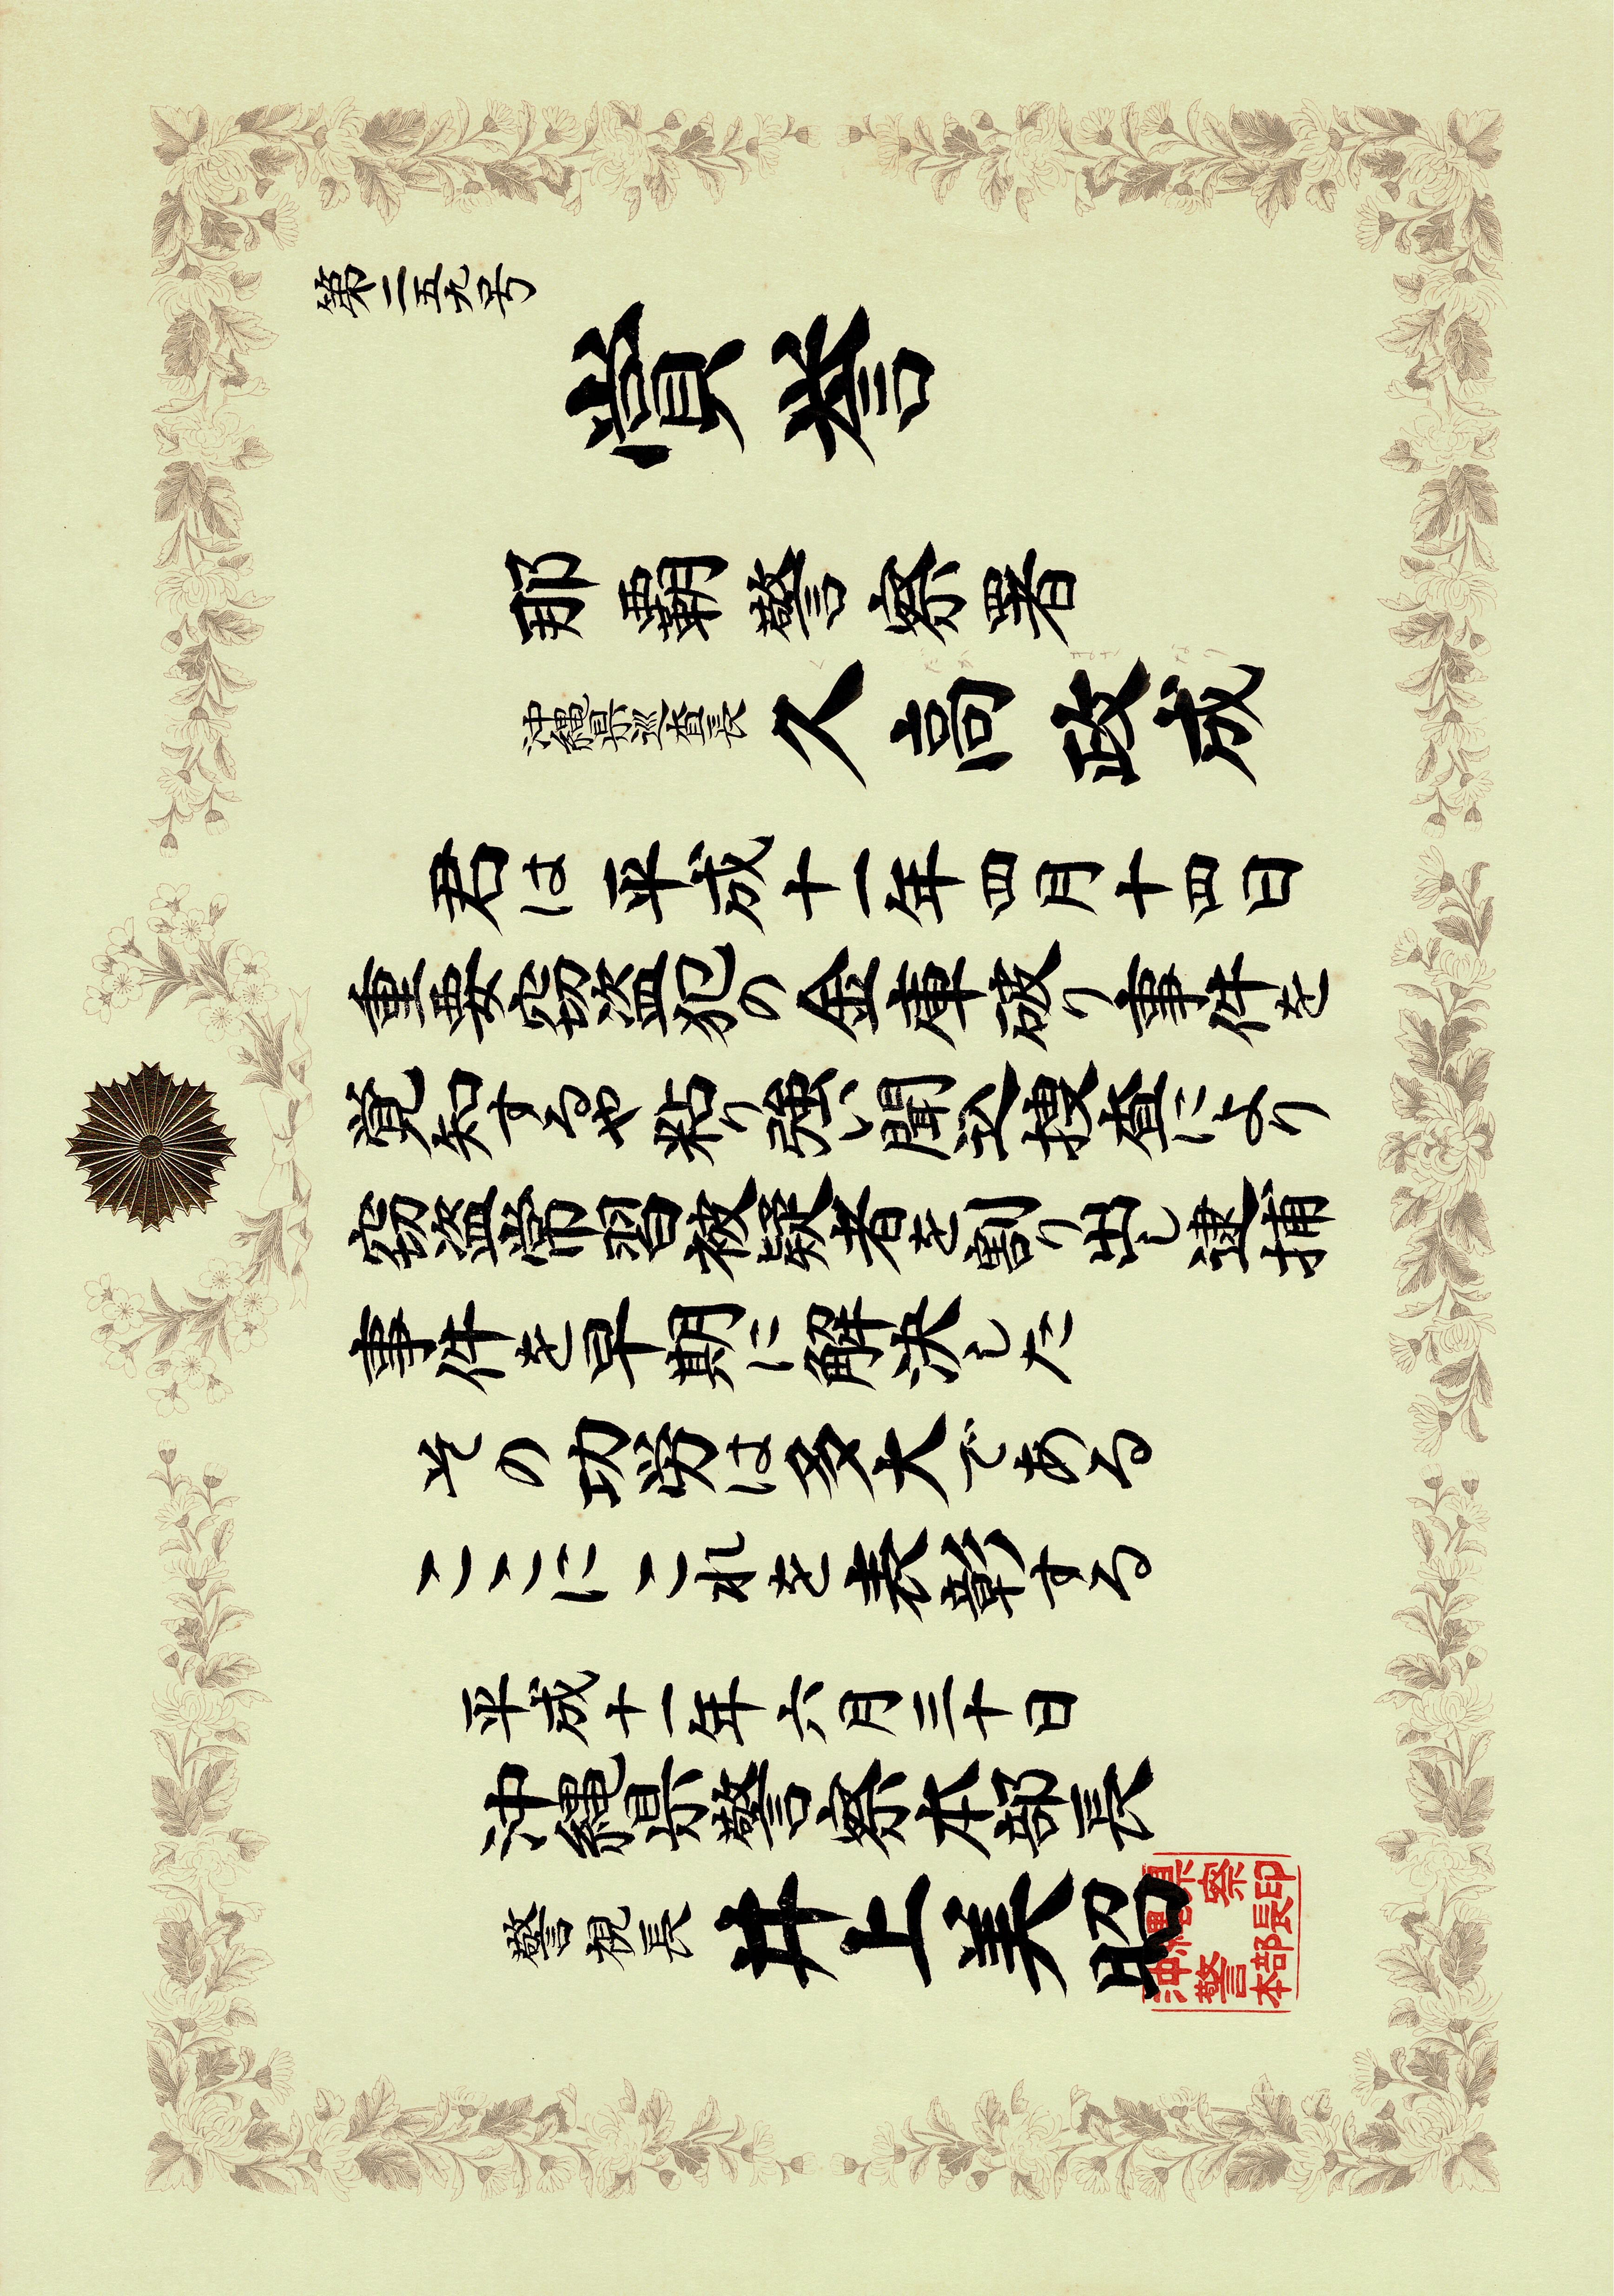 第二五九号
賞誉
那覇警察署
沖縄県巡査長 久高政成
君は平成十一年四月十四日
重要窃盗犯の金庫破り事件を
覚知するや粘り強い聞込捜査により
窃盗常習被疑者を割り出し逮捕
事件を早期に解決した
その功労は多大である
ここにこれを表彰する
平成十一年六月三十日
沖縄県警察本部長
警視長 井上美昭
沖縄県
警察
本部長印